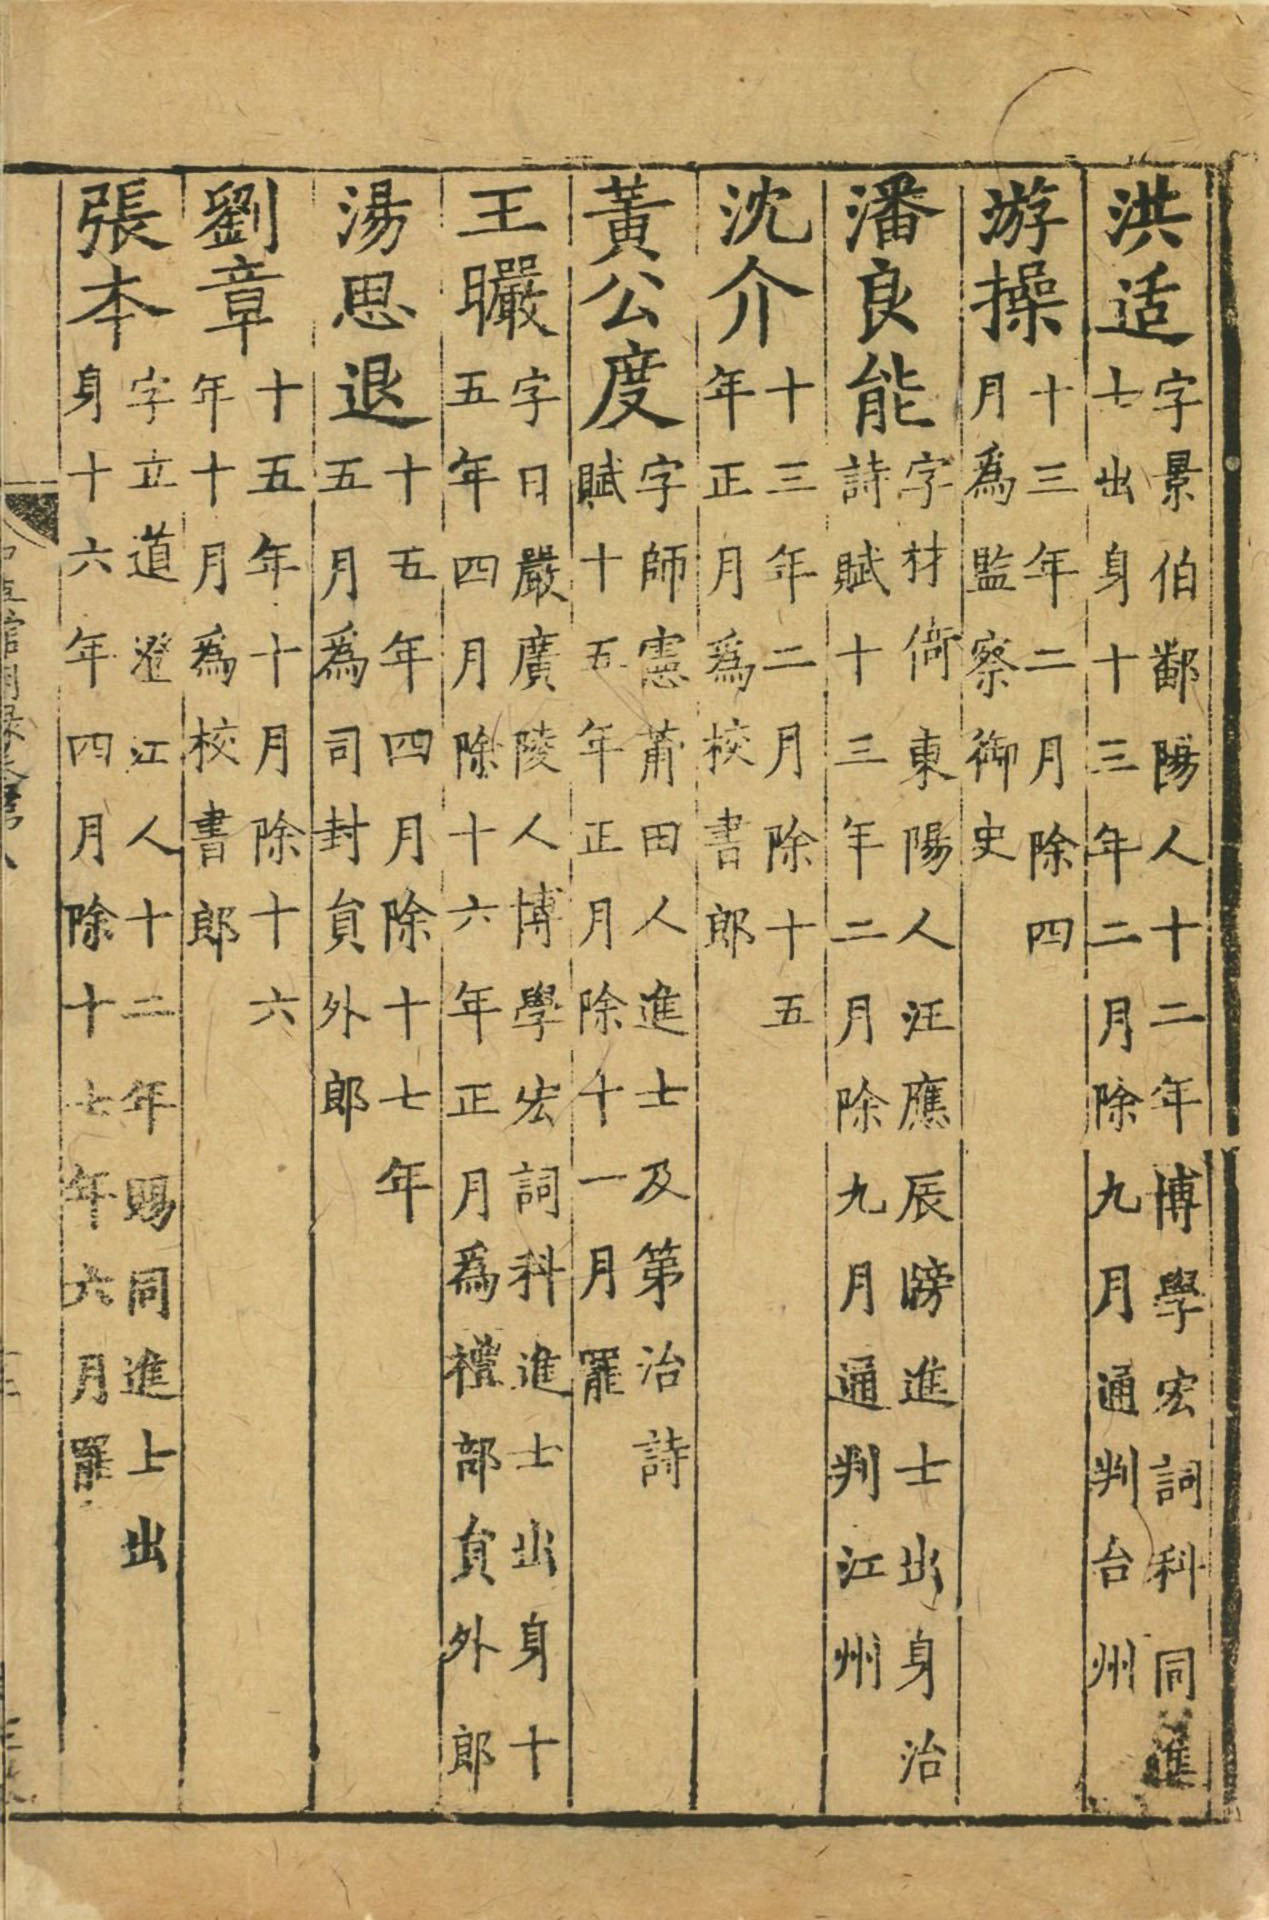 洪适字景伯鄱陽人十二年博學宏詞科同進
士出身十三年二月除九月通判台州
游操十三年二月除四
月爲監察御史
潘良能字材𠉀東陽人汪應辰牓進士出身治
詩賦十三年二月除九月通判江州
沈介十三年二月除十五
年正月爲校書郎
黃公度字師憲莆田人進士及第治詩
賦十五年正月除十一月罷
王曮字日嚴廣陵人博學宏詞科進士出身十
五年四月除十六年正月爲禮部員外郎
湯思退十五年四月除十七年
五月爲司封員外郎
劉章十五年十月除十六
年十月爲校書郎
張本字立道澄江人十二年賜同進士出
身十六年四月除十七年六月罷